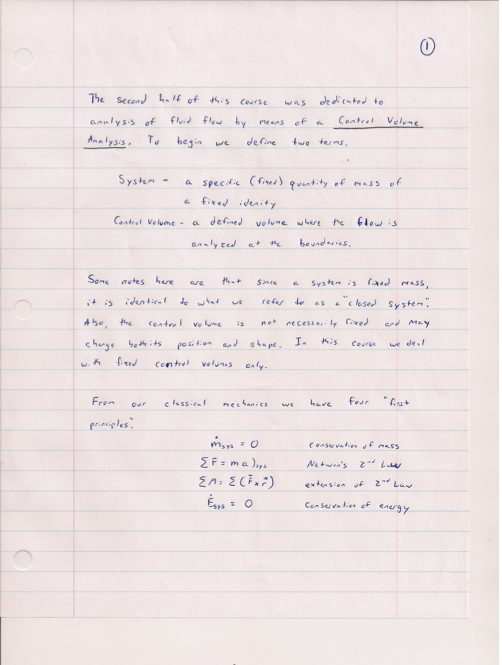 1
The second half of this course was dedicated to
analysis of fluid flow by means of a Control Volume
Analysis. To begin we define two terms.
System - a specific (fixed) quantity of mass of
a fixed idenity
Control Volume - a defined volume where the flow is
analyzed at the boundaries.
Some notes here are that since a system is fixed mass,
it is identical to what we refer to as a "closed system".
Also, the control volume is not necessarily fixed and may
change both its position and shape. In this course we deal
with fixed control volumes only.
From our classical mechanics we have four "first
principles".
ṁsys = 0 conservation of mass
ΣF̄ = ma)sys Netwon's 2nd Law
ΣM = Σ(F̄×r⃗) extension of 2nd Law
Ėsys = 0 Conservation of energy